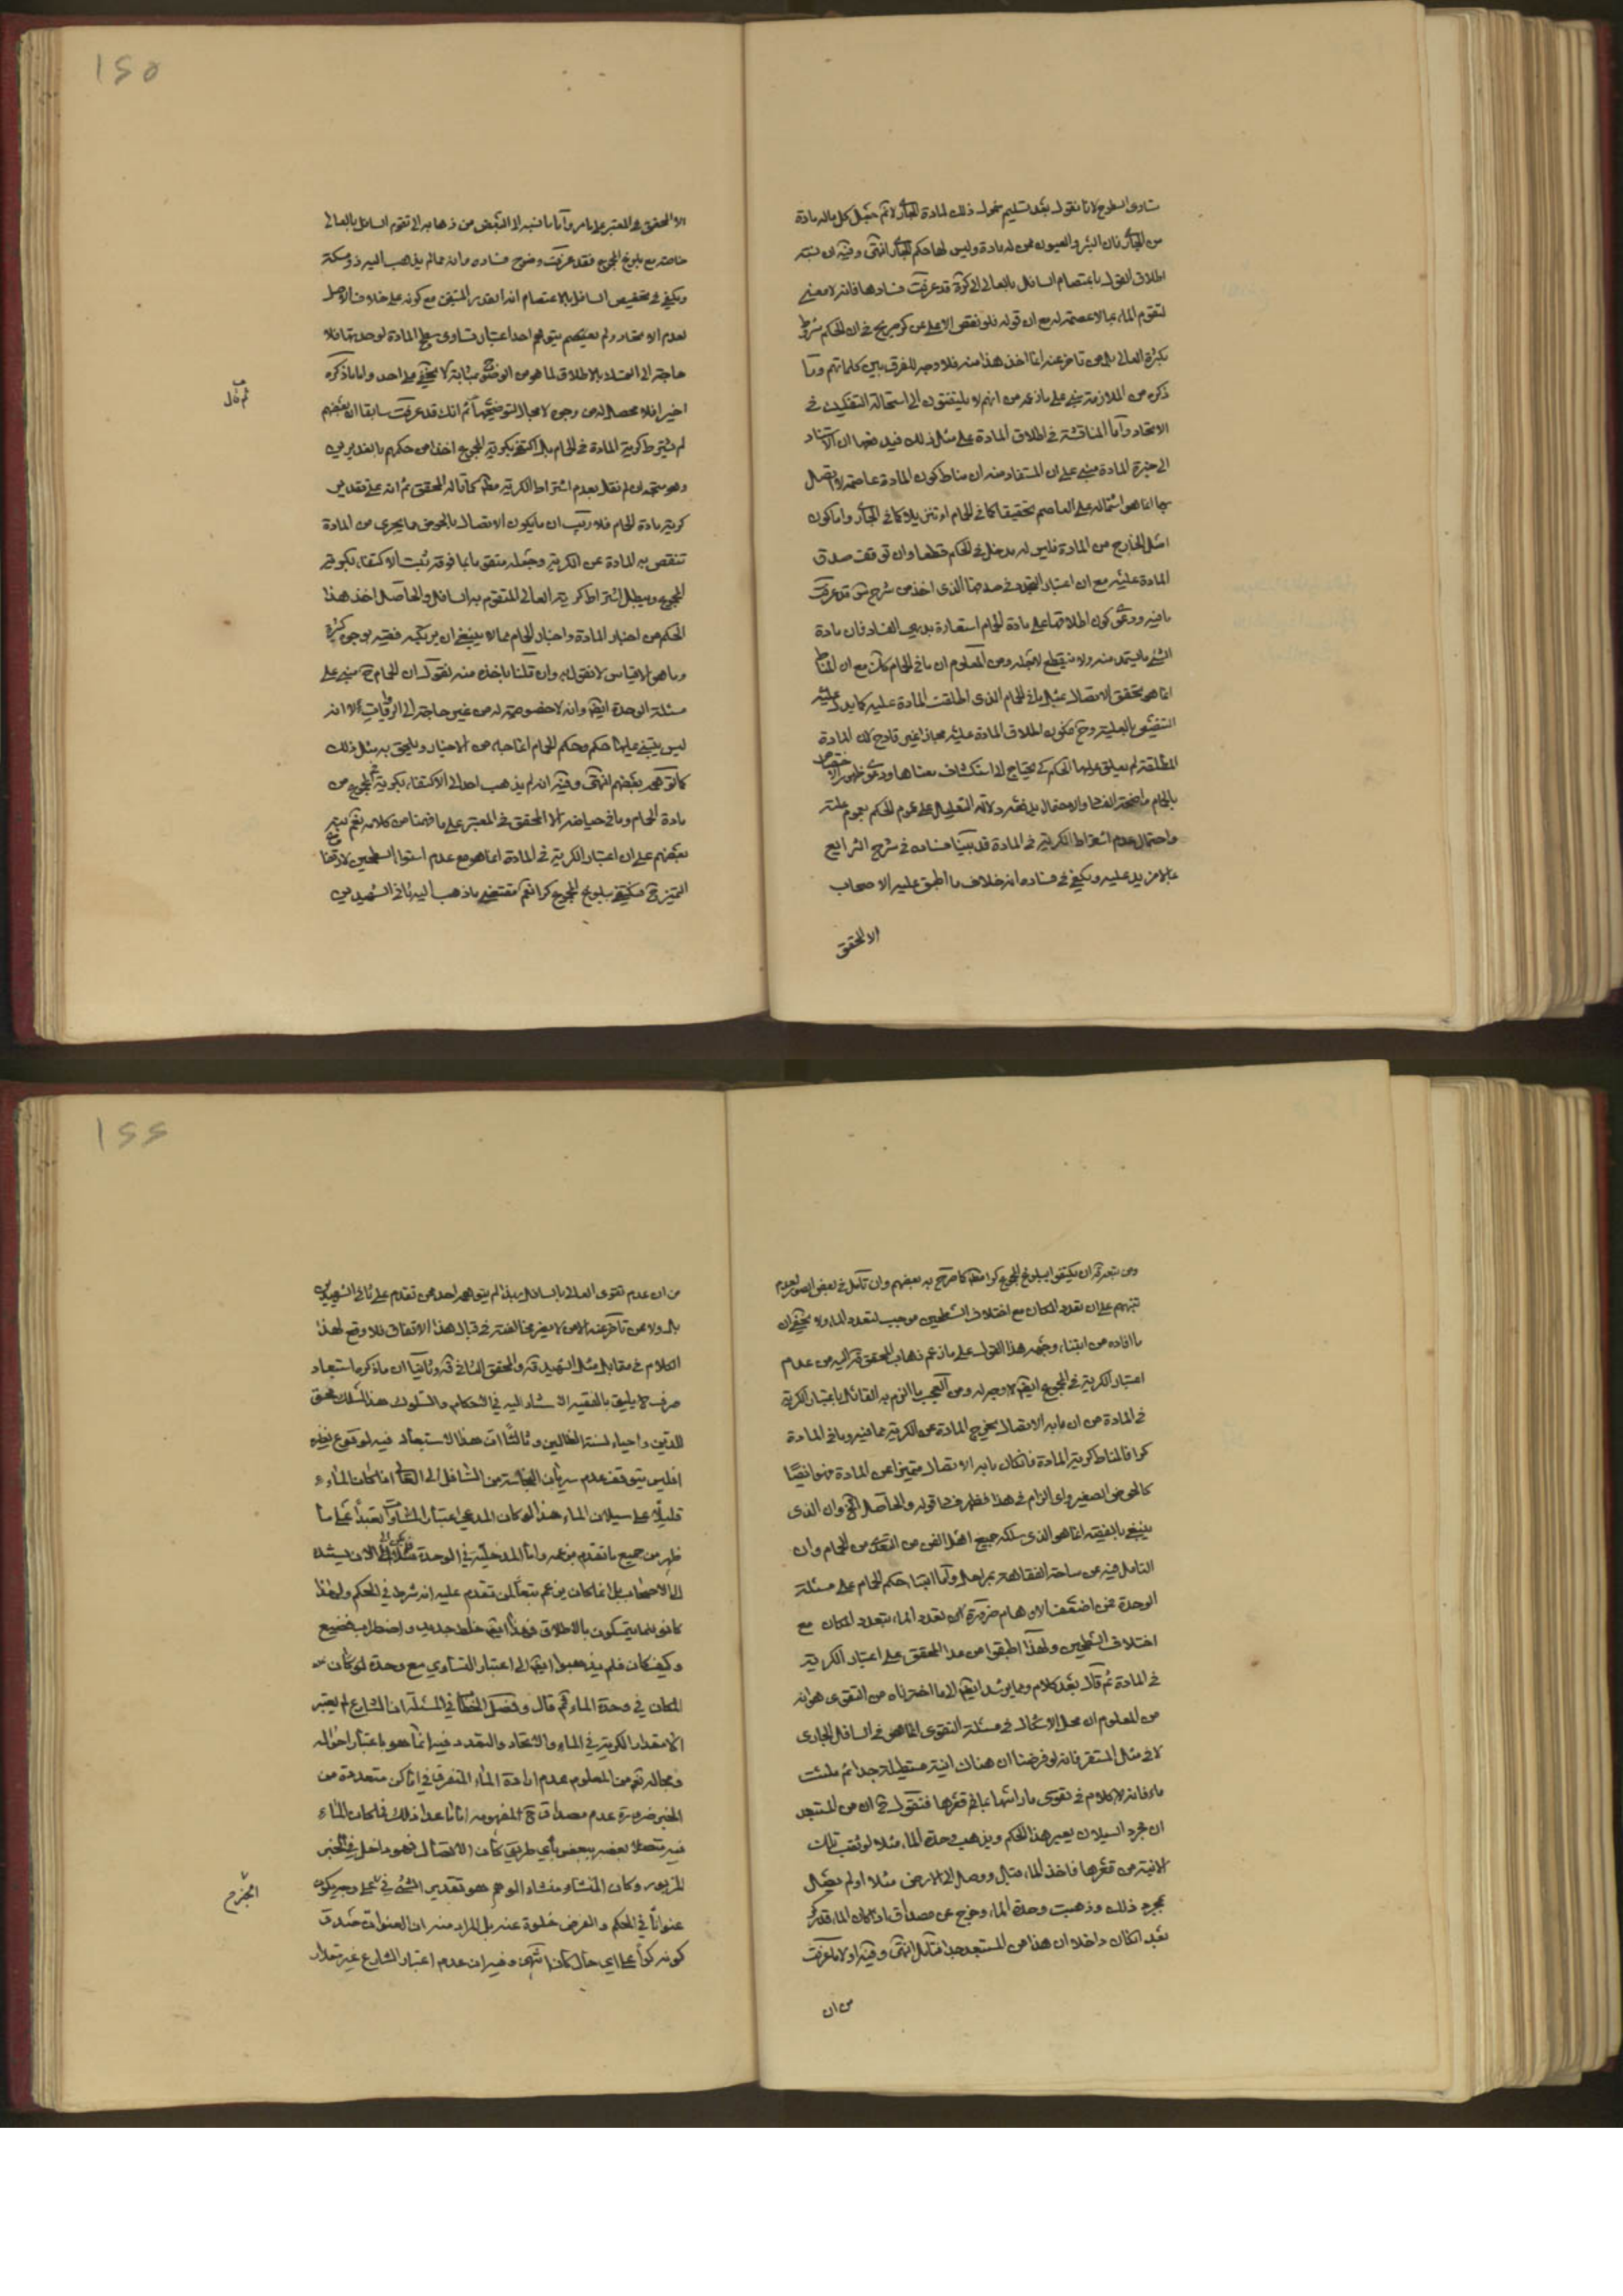 تساوى السطوح لانا نقول بعد تسليم شمول ذلك لمادة الجارى لا تم جعل كل ماله مادة
من الجارى فان البئر والعيون ممن له مادة وليس لها حكم الجارى انتهى وفيه ان نسبة
اطلاق القول باعتصام السافل بالعالى الى كرة قد عرفت فسادها فانه لا معنى
لتقوم الماء بما لا عصمة له مع ان قوله فلو نقص الاعلى عن كر صريح فى ان الحكم مشروط
بكرية العالى بل من تاخر عنه انما اخذ هذا منه فلا وجه للفرق بين كلماتهم وما
ذكره من الملازمة مبنى على ما زعمه من انهم لا يلتفتون الى استحالة التفكيك فى
الاتحاد واما المناقشة فى اطلاق المادة على مثل ذلك فيدفعها ان الاستناد
الى خبرة المادة مبنى على ان المستفاد منه ان مناط كون المادة عاصمة لاتصال
بها انما هو اشتماله على العاصم تحقيقا كما فى الحمام او تنزيلا كما فى الجارى واما كون
اصل الخارج من المادة فليس له مدخل فى الحكم قطعا وان توقف صدق
المادة عليه مع ان اعتبار التجدد فى صدقها الذى اخذ من شرح قد عرفت
ما فيه ودعوى كون اطلاقها على مادة الحمام استعارة بديهى الفساد فان مادة
الشئ ما يستمد منه ولا ينقطع لاجله ومن المعلوم ان ما فى الحمام كك مع ان المناط
انما هو تحقق الاتصال بمثل ما فى الحمام الذى اطلقت المادة عليه كما يدل عليه
التفريع بالعلية وح فكون اطلاق المادة عليه مجازا غير قادح لان المادة
المطلقة لم يعلق عليها الحكم كى يحتاج الى استكشاف معناها ودعوى ظهور الاختصاص
بالحمام واضحة الفساد والاحتمال يدفعه دلالة التعليل على عموم الحكم بعموم علته
واحتمال عدم اشتراط الكرية فى المادة قد بينا فساده فى شرح الشرايع
بما لا مزيد عليه ويكفى فى فساده انه خلاف ما اطبق عليه الاصحاب
الا المحقق
١٤٥
الا المحقق فى المعتبر على ما مر واما ما نسبه الى البعض من ذهابه الى تقوم السافل بالعالى
خاصة مع بلوغ المجموع فقد عرفت وضوح فساده وانه مما لم يذهب اليه ذو مسكة
ويكفى فى تخصيص السافل بالاعتصام انه القدر المتيقن مع كونه على خلاف الاصل
لعدم الاتحاد ولم يتوهم احد اعتبار تساوى سطح المادة لوحدتها فلا
حاجة الى التمسك بالاطلاق لما هو من الوضوح بمثابة لا تخفى على احد واما ما ذكره
اخيرا فلا محصل له من وجوه لا مجال لتوضيحها ثم انك قد عرفت سابقا ان بعضهم
ثم قال
لم يشترط كرية المادة فى الحمام بل اكتفى بكرية المجموع اخذا من حكمهم بالغديرين
وهو متجه ان لم نقل بعدم اشتراط الكرية مطلقا كما قاله المحقق ثم انه على تقدير
كرية مادة الحمام فلا ريب ان ما يكون الاتصال بالحوض مما يجرى من المادة
تنقص به المادة عن الكرية وجعله متقوما بما فوقه يثبت الاكتفاء بكرية
المجموع ويبطل اشتراط كرية العالى المتقوم به السافل والحاصل اخذ هذا
الحكم من اخبار المادة واخبار الحمام مما لا ينبغى ان يرتكبه فقيه بوجوه كثيرة
وما هو الا قياس لا نقول به وان قلنا باخذه منه لنقول ان الحمام ح مبنى على
مسئلة الوحدة ايضا وانه لا خصوصية له من غير حاجة الى الروايات الا انه
ليس يبتنى عليها حكم وحكم الحمام انما جاء من الاخبار ويلحق به مثل ذلك
كما توهمه بعضهم انتهى وفيه انه لم يذهب احد الى الاكتفاء بكرية المجموع من
مادة الحمام وما فى حياضه الا المحقق فى المعتبر على ما فهمنا من كلامه نعم نبه
بعضهم على ان اعتبار الكرية فى المادة انما هو مع عدم استواء السطحين لارتفاع
التميز ح فيكتفى ببلوغ المجموع كرا نعم مقتضى ما ذهب اليه ثانى الشهيدين
ومن تبعه ان يكتفوا ببلوغ المجموع كرا مطلقا كما صرح به بعضهم وان تامل فى بعض الصور لعدم
تنبههم على ان تعدد المكان مع اختلاف السطحين موجب لتعدد الماء ولا يخفى ان
ما افاده من ابتناء وجه هذا القول على ما زعم ذهاب المحقق اليه من عدم
اعتبار الكرية فى المجموع ايضا لا وجه له ومن العجب ما الزم به القائل باعتبار الكرية
فى المادة من ان ما به الاتصال يخرج المادة عن الكرية مما فيه وما فى المادة
كرا فالمناط كرية المادة فان كان ما به الاتصال متميزا عن المادة فهو ايضا
كالحوض الصغير واى الزام فى هذا فظهر فساد قوله والحاصل الخ وان الذى
ينبغى بالفقيه انما هو الذى سلكه جميع اهل الفن من التعدى من الحمام وان
التامل فيه عن ساحة الفقاهة بمراحل واما ابتناء حكم الحمام على مسئلة
الوحدة فمن اضعف الاوهام ضرورة ان تعدد الماء بتعدد المكان مع
اختلاف السطحين ولهذا اطبقوا من عدا المحقق على اعتبار الكرية
فى المادة ثم قال بعد كلام ومما يرشد ايضا الى ما اخترناه من التقوى هو انه
من المعلوم ان محل الاشكال فى مسئلة التقوى انما هو فى السافل الجارى
لا فى مثل المستقر فانه لو فرضنا ان هناك انية مستطيلة جدا ثم ملئت
ماء فانه لا كلام فى تقوى ما راسها بما فى قعرها فنقول ح ان من المستبعد
ان مجرد السيلان يغير هذا الحكم ويذهب وحدة الماء مثلا لو ثقب تلك
الانية من قعرها فاخذ الماء ووصل الى الارض مثلا او لم يصل
بمجرد ذلك وذهبت وحدة الماء وخرج عن مصداق اذا كان الماء قدر كر
بعد ان كان داخلا ان هذا من المستبعد جدا فتامل انتهى وفيه اولا ما عرفت
من ان
١٤٤
من ان عدم تقوى العالى بالسافل لم يتوهمه احد ممن تقدم على ثانى الشهيدين
بل ولا ممن تاخر عنه الا من لا يضر مخالفته فى قبال هذا الاتفاق فلا وقع لهذا
الكلام فى مقابل مثل الشهيد قه والمحقق الثانى قه وثانيا ان ما ذكره استبعاد
صرف لا يليق بالفقيه الاستناد اليه فى الاحكام والسلوك هذا المسلك محق
للدين واحياء لسنة الضالين وثالثا ان هذا الاستبعاد فيه لوقوع نظيره
افليس يتوقف عدم سريان النجاسة من السافل الى العالى اذا كان الماء
قليلا على سيلان الماء هذا لو كان المدعى اعتبار المساواة تعبدا على ما
ظهر من جميع ما تقدم من زعمه واما المدخلية فى الوحدة فلا الا ان يسنده
الى الاصحاب بل انما كان يزعم تبعا لمن تقدم عليه انه شرط فى الحكم ولهذا
كانوا يتمسكون بالاطلاق فهذا ايضا خلط جديد واضطراب فضيع
وكيف كان فلم يذهبوا ايضا الى اعتبار التساوى مع وحدة المكان
المكان فى وحدة الماء ثم قال وفصل الخطاب فى المسئلة ان الشارع لم يعتبر
الا مقدار الكرية فى الماء والاتحاد والتعدد فيه انما هو باعتبار احواله
ومحاله نعم من المعلوم عدم ارادة الماء المتفرق فى اماكن متعددة من
الخبر ضرورة عدم مصداق المفهوم اما ما عدا ذلك فما كان الماء
فيه متصلا بعضه ببعض باى طريق كان الاتصال فهو داخل فى الخبر
المزبور وكان المنشاء منشاء الوهم هو تقدير الشئ فى على وجه يكون
الجزء
عنوانا فى الحكم والغرض خلوه عنه بل المراد منه ان العنوان صدق
كونه كرا على اى حال كان انتهى وفيه ان عدم اعتبار الشارع غير مقدار